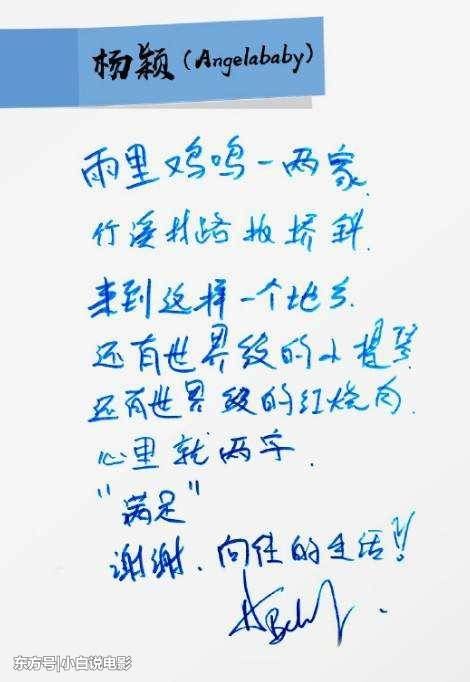 杨颖(Angelababy)
雨里鸡鸣一两家
竹溪村路板桥斜.
来到这样一个地方.
还有世界级的小提琴
还有世界级的红烧肉.
心里就两字.
"满足"
谢谢.向往的生活!!
东方号|小白说电影